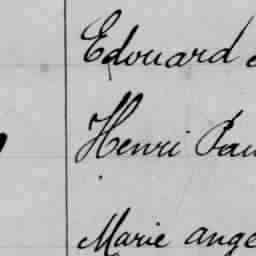 Edouard
Henri Pau
Marie ange